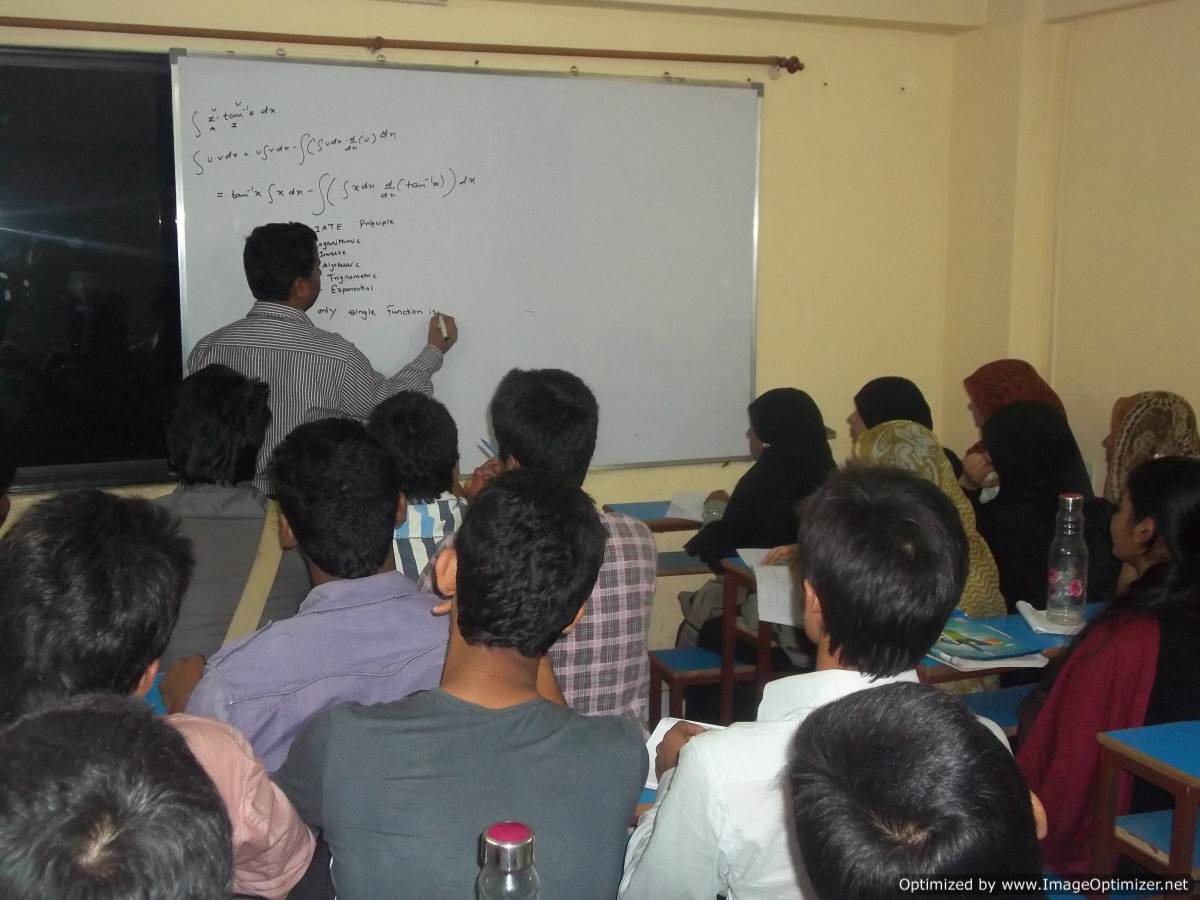 ∫ x · tan⁻¹x dx
∫ u v dx = u ∫ v dx - ∫ ( ∫ v dx · d/dx (u) ) dx
= tan⁻¹x ∫ x dx - ∫ ( ∫ x dx d/dx ( tan⁻¹x ) ) dx
IATE Principle
ogarithmic
Inverse
Algebraic
Trignometric
Exponential
only single function is
Optimized by www.ImageOptimizer.net